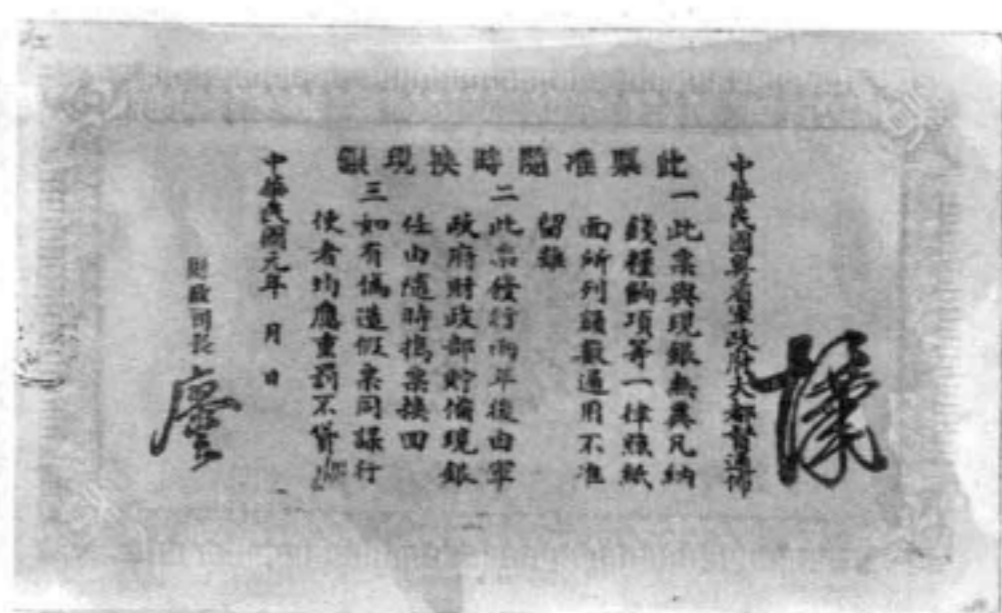 中華民國粵省軍政府大都督
漢
此票准隨時換現銀
一此票與現銀無異凡納
錢糧餉項等一律照紙
面所列額數通用不准
留難
二此票發行兩年後由軍
政府財政部貯備現銀
任由隨時携票換回
三如有偽造假票同謀行
使者均應重罰不貸
中華民國元年 月 日
財政司長
廖